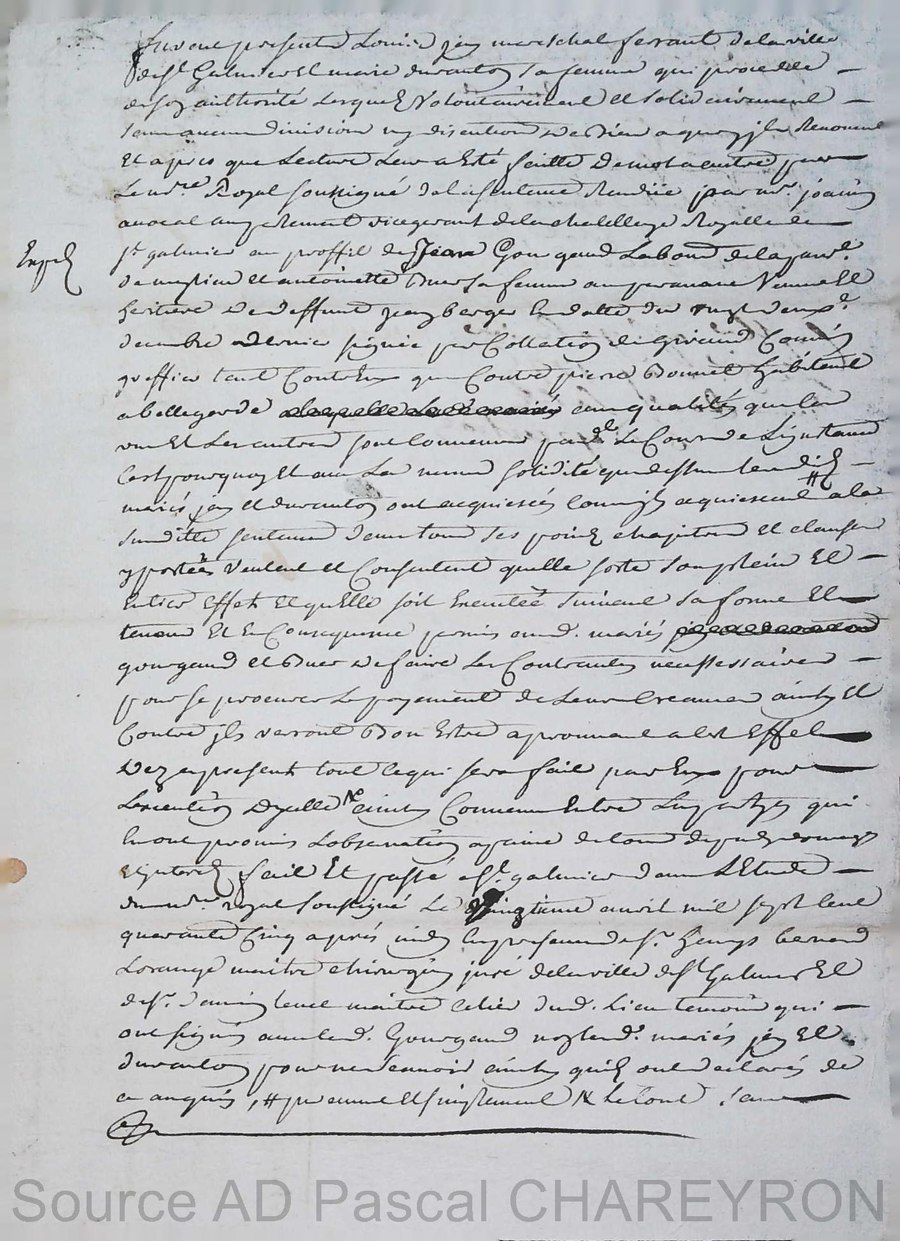 furent presents Louis jay mareschal ferrant de la ville
de st Galmier et marie duranton sa femme qui procedde
de soy authorité Lesquels Volontairement et solidairement
sans aucune division ny discution de Bien a quoy jls Renoncent
Et apres que Lecture Leur a Esté faitte de mot a autre par
Le nre Royal soussigné de la sentence Rendüe par mr
avocat en parlement vicegerant de la chatellenye Royalle de
st galmier au proffit de Jean Gourgaud Labour de la parr.
et antoinette Buer sa femme auparavant Veuve Et
heritiere de deffunt jean berger En datte du vingt deux
decembre dernier signée par Collation Commis
greffier tant Contr'Eux que Contre pierre Bonnet habitant
a bellegarde aux qualités que Les
uns Et Les autres sont Convenues par d. Le Cours de L'jnstance
C'est pourquoy Et sous La meme solidité que dessus Lesdits
mariés jay et duranton ont acquiescés Comm'jls acquiescent # a la
susditte sentence dans tous ses points chapitres et clauses
y portées Veulent et Consentent quelle sorte son plein Et
Entier Effet Et qu'Elle soit Executée suivant sa forme Et
teneur Et En Consequence permis aux d. mariés
gourgaud et Buer de faire Les Contraintes necessaires
pour se procurer Le payement de Leur Creance ainsy Et
Contre jls verront Bon Estre aprouvant a cet Effet
Dez apresent tout ce qui sera fait par Eux pour
L'execution D'ycelle ainsy Convenu Entre Les partyes qui
En ont promis L'observation a paine de tous depens domages
Et jnterets fait Et passé a st. galmier dans L'Etude
du nre royal soussigné Le vingtieme avril mil sept Cent
quarante Cinq apres midy En presence de sr. henry bernard
Lorange maitre chirurgien juré de la ville de st Galmier Et
de sr. maitre du d. Lieu temoins qui
ont signés avec led. Gourgaud non lesd. mariés jay Et
duranton pour ne sçavoir ainsy qu'jls ont declarés de
ce enquis, # purement et simplement Le tout sans